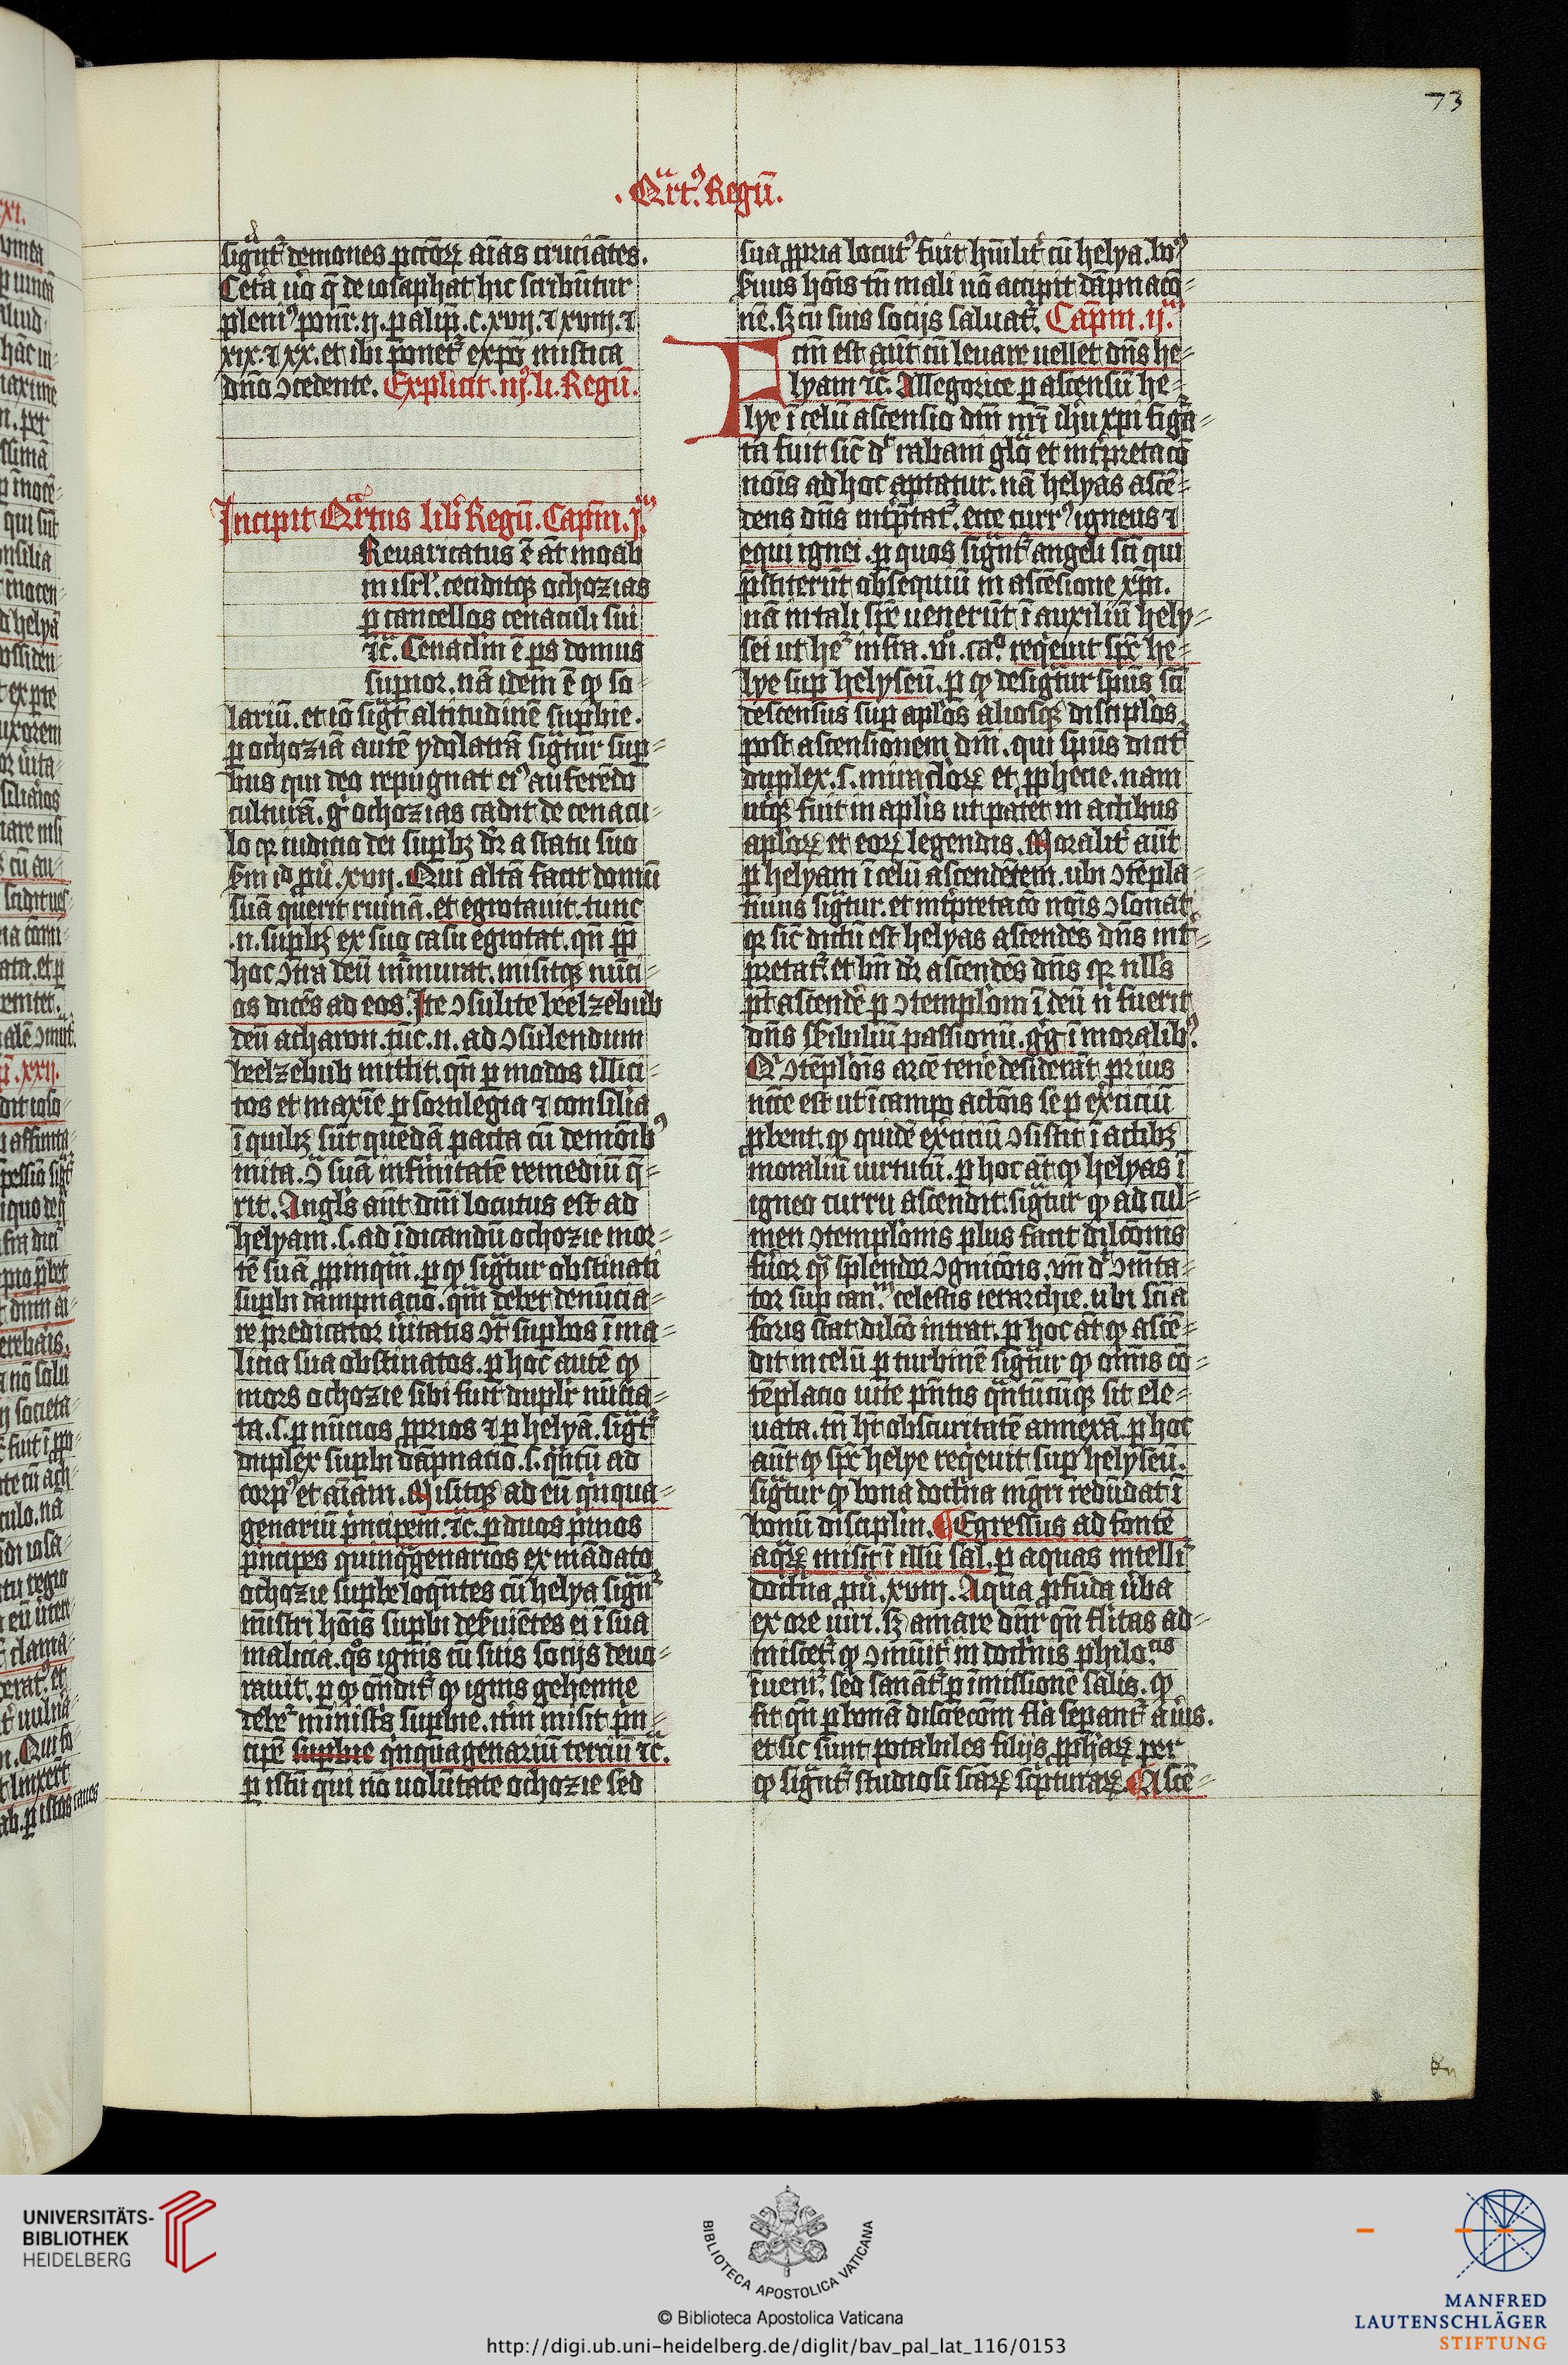 73
.Qͣrtꝰ. Regū.
signͣtʳ demones pctōꝝ aīas cruciātes.
Cetͣa u̾o q̄ de iosaphat hic scribūtur
pleniꝰ ponr̄. ij. palip̄. c. xvij. ⁊ xviij. ⁊
xix. ⁊ xx. et ibi ponet᷑ expō mistica
dn̄o ↄcedente. Explicit. iijꝰ. li. Regū.
Incipit Qͣrtus lib̾ Regū. Capm̄. jᵐ.
Reuaricatus ē āt moab
in isrl̄. ceciditqꝫ ochozias
ꝑ cancellos cenaculi sui
⁊c̄. Cenaclm̄ ē ꝑs domus
suꝑior. nā idem ē ꝙ so-
lariū. et iō sigͣt altitudinē suꝑbie.
ꝑ ochoziā autē ydolatrā signͣtur suꝑ-
bus qui deo repugnat eiꝰ auferēdo
culturā. gͦ ochozias cadit de cenacu-
lo qꝛ iudicio dei suꝑbꝫ dr̄ a statu suo
sm̄ id pu̾. xvij. Qui altā facit domū
suā querit ruinā. et egrotauit. tunc
.n. suꝑbꝫ ex suo casu egrotat. qn̄ ꝓp̄
hoc ↄͣ deū īmurat. misitqꝫ nūci-
os dicēs ad eos. Ite ↄsulite beelzebub
deū acharon. tūc .n. ad ↄsulendum
beelzebub mittit. qn̄ ꝑ modos illici-
tos et maxīe ꝑ sortilegia ⁊ consilia
ī quibꝫ sūt quedā pacta cū demōibꝰ
inita. ↄͣ suā infinitatē remediū q̄-
rit. Angl̄s aūt dn̄i locutus est ad
helyam. s. ad īdicandū ochozie mor-
tē suā ꝓpinquā. ꝑ ꝙ signͣtur obstinati
suꝑbi dampnacio. quā debet denūcia-
re predicator u̾itatis ↄtͣ suꝑbos ī ma-
licia sua obstinatos. ꝑ hoc autē ꝙ
mors ochozie sibi fuit duplr̄ nūcia-
ta. s. ꝑ nūcios ꝓprios ⁊ ꝑ helyā. sigͣt᷑
duplex suꝑbi dāpnacio. s. qͣntū ad
corpꝰ et aīam. Misitqꝫ ad eū quīqua-
genariū pͥncipem. ⁊c̄. ꝑ duos pͥmos
pͥncipes quinqͣgenarios ex mādato
ochozie suꝑbe loqn̄tes cū helya signͣ᷑
mīstri hōis suꝑbi deseruiētes ei ī sua
malicia. qͦs ignis cū suis socijs deuo-
rauit. ꝑ ꝙ on̄dit᷑ ꝙ ignis gehenne
debet᷑ ministͥs suꝑbie. itm̄ misit pͥn-
cipē suꝑbie qͥnquagenariū terciū ⁊c̄.
ꝑ istū qui nō uolūtate ochozie sed
sua ꝓpria locutꝰ fuit hūilit᷑ cū helya. boꝰ
seruus hōis tn̄ mali nō accipit dāpnacō-
nē. sꝫ cū suis socijs saluat᷑. Capm̄. ij.ᵐ
Fctm̄ est aūt cū leuare uellet dn̄s he-
lyam ⁊c̄. Allegorice ꝑ ascensū he-
lye ī celū ascensio dn̄i nr̄i ihu xp̄i figuͣ-
ta fuit sic̄ dͥ rabani glō et int̾pretacō
nōis ad hoc aptatur. nā helyas ascē-
dens dn̄s int̾p̄tat᷑. ecce currꝰ igneus ⁊
equi ignei. ꝑ quos signͣt᷑ angeli sc̄i qui
p̄stiterūt obsequiū in ascēsione xp̄m.
nā in tali spē uenerūt ī auxiliū hely-
sei ut he᷑ infra. vi. caᵒ. reqͥeuit spc̄ he-
lye suꝑ helyseū. ꝑ ꝙ designͣtur spūs sc̄i
descensus suꝑ apl̄os aliosqꝫ disciplōs
post ascensionem dn̄i. qui spūs dicit᷑
duplex. s. miraclōꝝ et ꝓphecie. nam
ut̾qꝫ fuit in apl̄is ut patet in actibus
apl̄oꝝ et eoꝝ legendis. Moralit᷑ aūt
ꝑ helyam ī celū ascendētem. ubi ↄtēpla-
tiuus signͣtur. et int̾pretacō nōis ↄsonat
qꝛ sic̄ dictū est helyas ascendēs dn̄s int̾-
pretat᷑ et bn̄ dr̄ ascendēs dn̄s qꝛ nll̄s
pt̄ ascendē̾ ꝑ ↄtemplōm ī deū n̄ fuerit
dn̄s sēsibiliū passionū. gͦg ī moralibꝰ.
Qͥ ↄtēplōis arcē tenē̾ desiderāt. prius
nc̄ce est ut ī campo actōis se ꝑ ex̾ciciū
ꝓbent. ꝙ quidē ex̾ciciū ↄsistit ī actibꝫ
moraliū uirtutū. ꝑ hoc āt ꝙ helyas ī
igneo curru ascendit. signͣtur ꝙ ad cul-
men ↄtemplōnis plus facit dilcōnis
furor qͣ splendor ↄgnicōis. vn̄ dͥ ↄmēta-
tor suꝑ can.ᵐ celestis ierarchie. ubi scīa
foris stat dilcō intrat. ꝑ hoc āt ꝙ ascē-
dit in celū ꝑ turbinē signͣtur ꝙ om̄is cō-
tēplacio uite pn̄tis qͣntūcūqꝫ sit ele-
uata. tn̄ hꝫ obscuritatē annexā. ꝑ hoc
aūt ꝙ spc̄ helye reqͥeuit suꝑ helyseū.
signͣtur ꝙ bona doctͥna mgr̄i redūdat ī
bonū disciplin. ¶ Egressus ad fontē
aqͣꝝ misit ī illū sal. ꝑ aquas intelligit᷑
doctͥna pu̾. xviij. Aqua ꝓfūda u̾ba
ex ore uiri. sꝫ amare dn̄r qn̄ fl̄itas ad-
miscet᷑ ꝙ ↄmūit᷑ in doctͥnis philo.ᶜⁱˢ
īuenit᷑. sed sanāt᷑ ꝑ īmissionē salis. ꝙ
fit qn̄ ꝑ bonā discrecōm fl̄a sepant᷑ a u̾is.
et sic sunt potabiles filijs ꝓphaꝝ per
ꝙ signͣt᷑ studiosi scāꝝ scͥpturaꝝ. ¶ Ascē-
UNIVERSITÄTS-
BIBLIOTHEK
HEIDELBERG
BIBLIOTECA APOSTOLICA VATICANA
© Biblioteca Apostolica Vaticana
http://digi.ub.uni-heidelberg.de/diglit/bav_pal_lat_116/0153
MANFRED
LAUTENSCHLÄGER
STIFTUNG